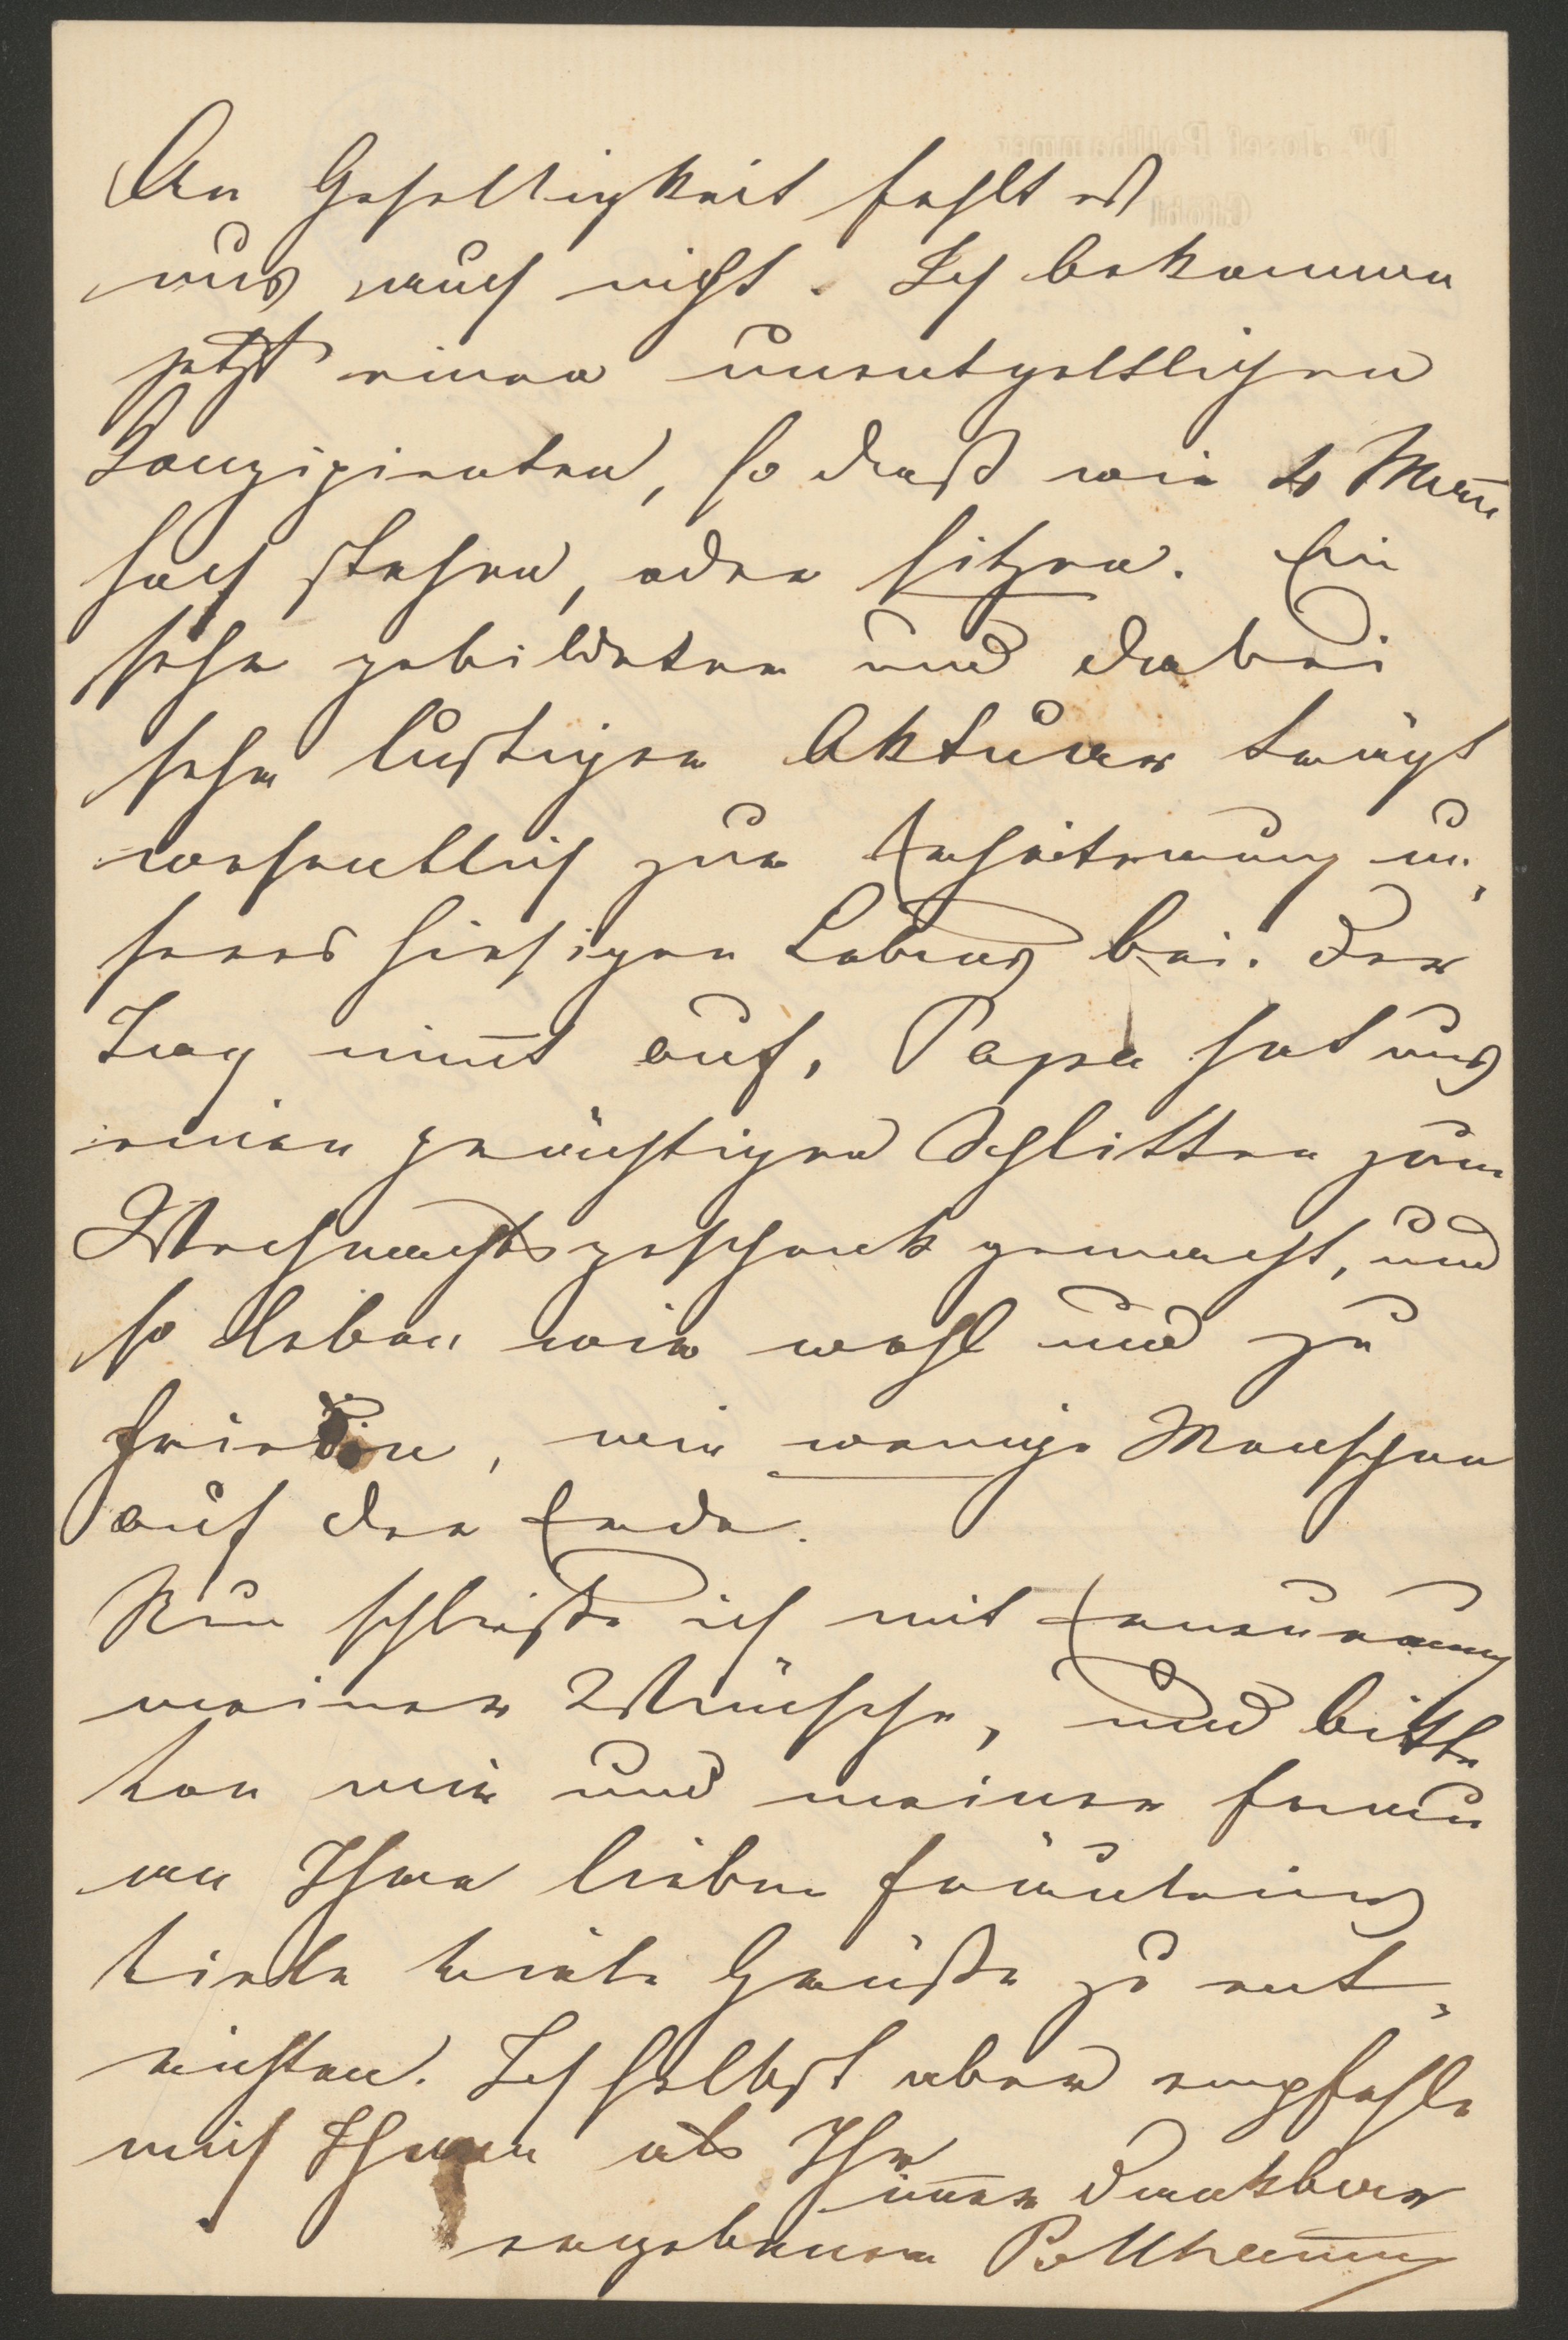 An Geselligkeit fehlt es
uns auch nicht. Ich bekomme
jetzt einen unentgeltlichen
Konzipienten, so daß wir 4 Mann̄
hoch stehen, oder sitzen. Ein
sehr gebildeter und dabei
sehr lustiger Aktuar trägt
wesentlich zur Erheiterung un,
seres hiesigen Lebens bei. Der
Tag nim̄t auf, Papa hat uns
einen prächtigen Schlitten zum
Weihnachtsgeschenk gemacht, und
so leben wir wohl und zu
frieden, wie wenige Menschen
auf der Erde.
Nun schließe ich mit Erneuerung
meiner Wünsche, und bitte
von mir und meiner Frau
an Ihre lieben Fräuleins
viele viele Grüße zu ent,
richten. Ich selbst aber empfehle
mich Ihnen als Ihr
im̄er dankbar
ergebener Pollham̄er
Dr. Josef Pollhammer